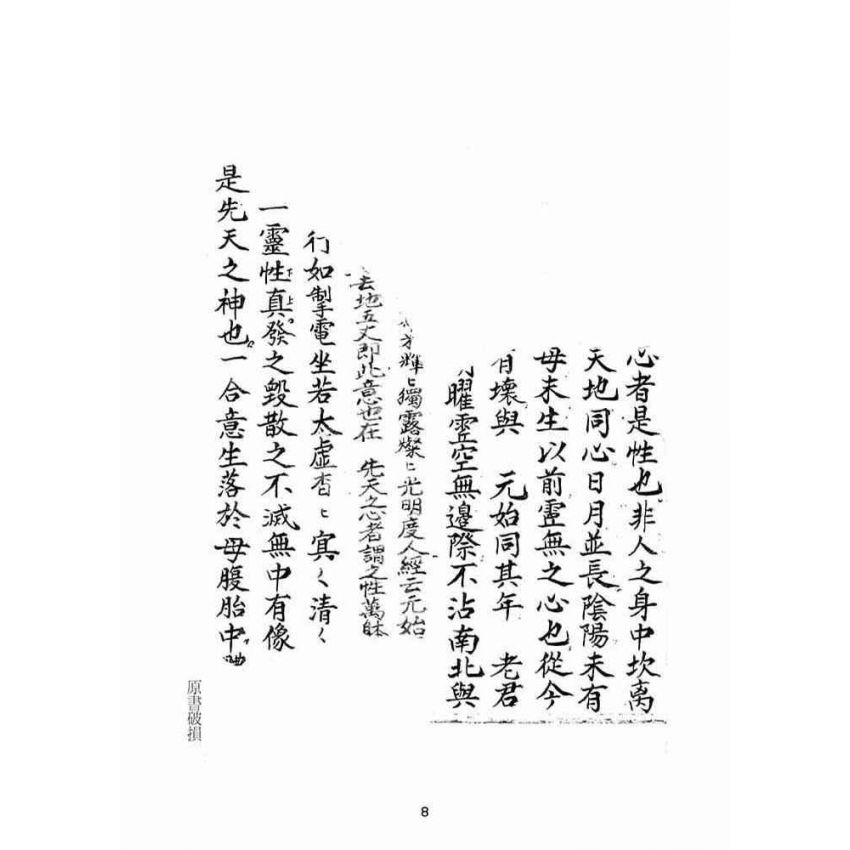 心者是性也非人之身中坎离
天地同心日月並長陰陽未有
母未生以前靈無之心也從今
有壞與 元始同其年 老君
曜靈空無邊際不沾南北與
輝〻獨露燦〻光明度人經云元始
去地五丈即此意也在 先天之心者謂之性萬妙
行如掣電坐若太虛杳〻㝠〻清〻
一靈性真發之毀散之不滅無中有像
是先天之神也一合意生落於母腹胎中
原書破損
8